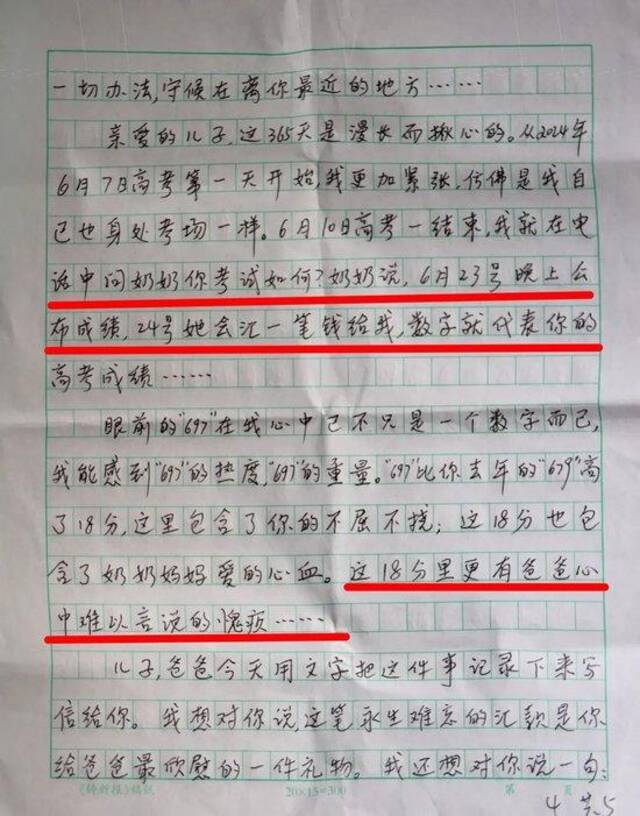 一切办法,守候在离你最近的地方……
亲爱的儿子,这365天是漫长而揪心的。从2024年
6月7日高考第一天开始,我更加紧张,仿佛是我自
己也身处考场一样。6月10日高考一结束,我就在电
话中问奶奶你考试如何?奶奶说,6月23号晚上公
布成绩,24号她会汇一笔钱给我,数字就代表你的
高考成绩……
眼前的"697"在我心中已不只是一个数字而已,
我能感到"697"的热度,"697"的重量。"697"比你去年的"679"高
了18分,这里包含了你的不屈不挠;这18分也包
含了奶奶妈妈爱的心血。这18分里更有爸爸心
中难以言说的愧疚……
儿子,爸爸今天用文字把这件事记录下来写
信给你。我想对你说,这笔永生难忘的汇款是你
给爸爸最欣慰的一件礼物。我还想对你说一句:
20×15=300 第 页
4 共5